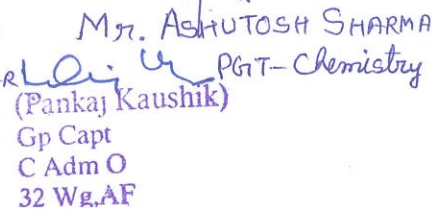 Mr. ASHUTOSH SHARMA
PGT-Chemistry
(Pankaj Kaushik)
Gp Capt
C Adm O
32 Wg,AF